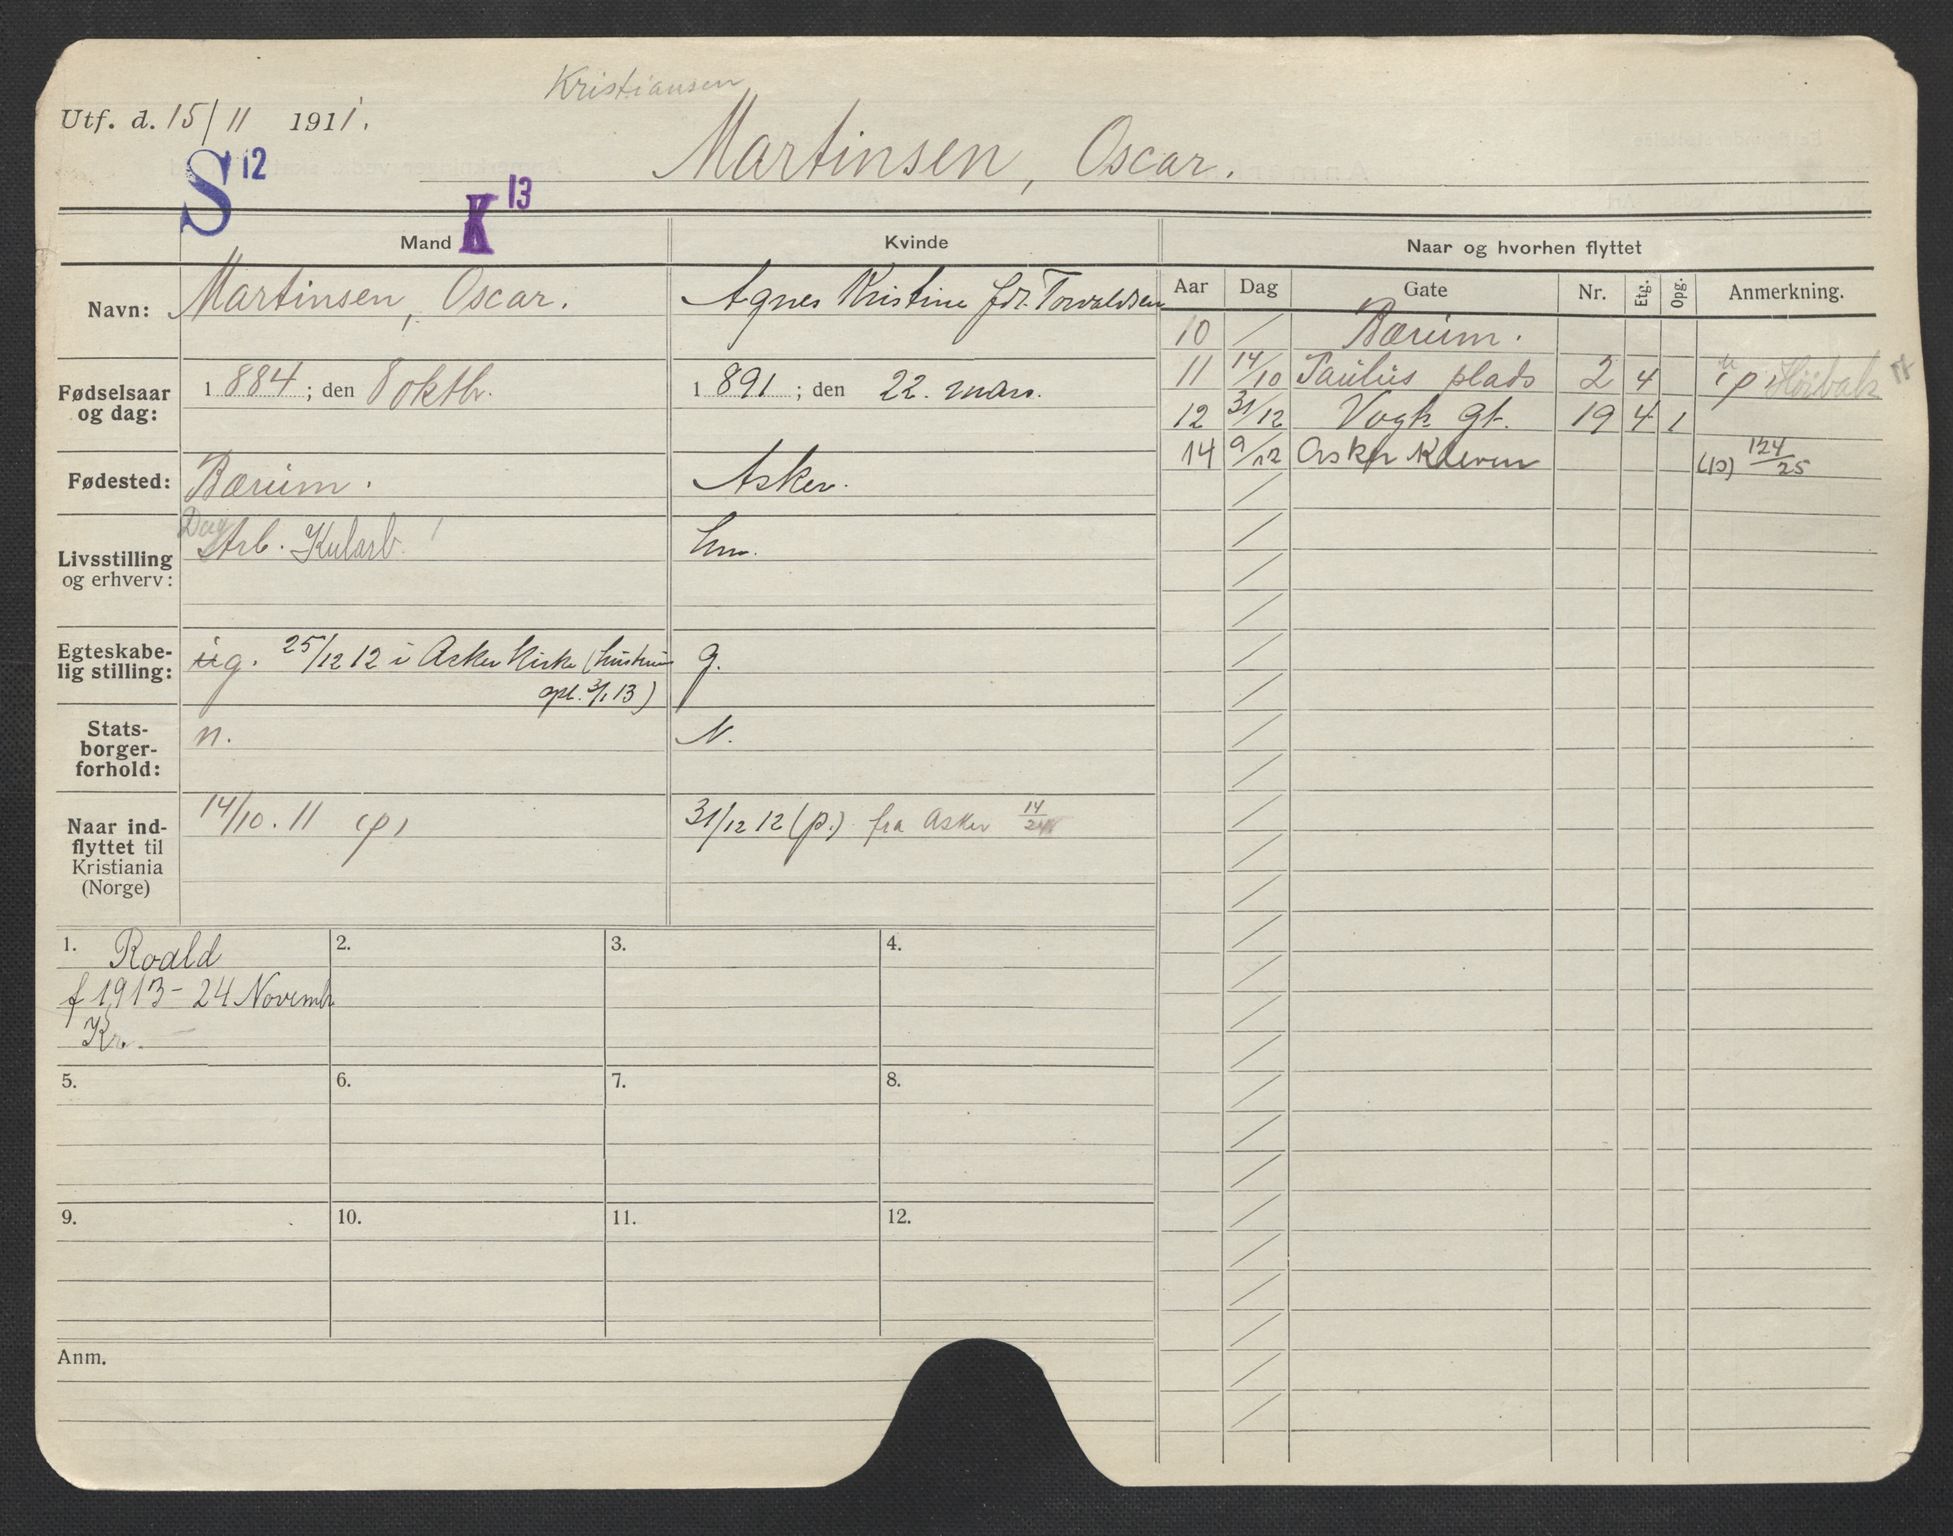 Kristiansen
Utf. d. 15/11 1911.
Martinsen, Oscar.
S 12
K 13
Mand
Kvinde
Naar og hvorhen flyttet
Navn: Martinsen, Oscar. Agnes Kristine fdt. Torvaldsen
Fødselsaar og dag: 1884; den 8 oktbr. 1891; den 22. mars.
Fødested: Bærum. Asker.
Livsstilling og erhverv: Arb. Kularb. hm.
Egteskabelig stilling: ug. 25/12 12 i Asker Kirke (hustruen g.
opl. 3/1 13)
Statsborgerforhold: n. N.
Naar indflyttet til Kristiania (Norge) 14/10. 11 (p) 31/12 12 (p.) fra Asker 14/24
Aar Dag Gate Nr. Etg. Opg. Anmerkning.
10 / Bærum.
11 14/10 Paulus plads 2 4 (p)
12 31/12 Vogts gt. 19 4 1
14 9/12 Asker Kleven (p) 124/25
1. Roald
f 1913 - 24 Novembr
Kr.
2.
3.
4.
5.
6.
7.
8.
9.
10.
11.
12.
Anm.